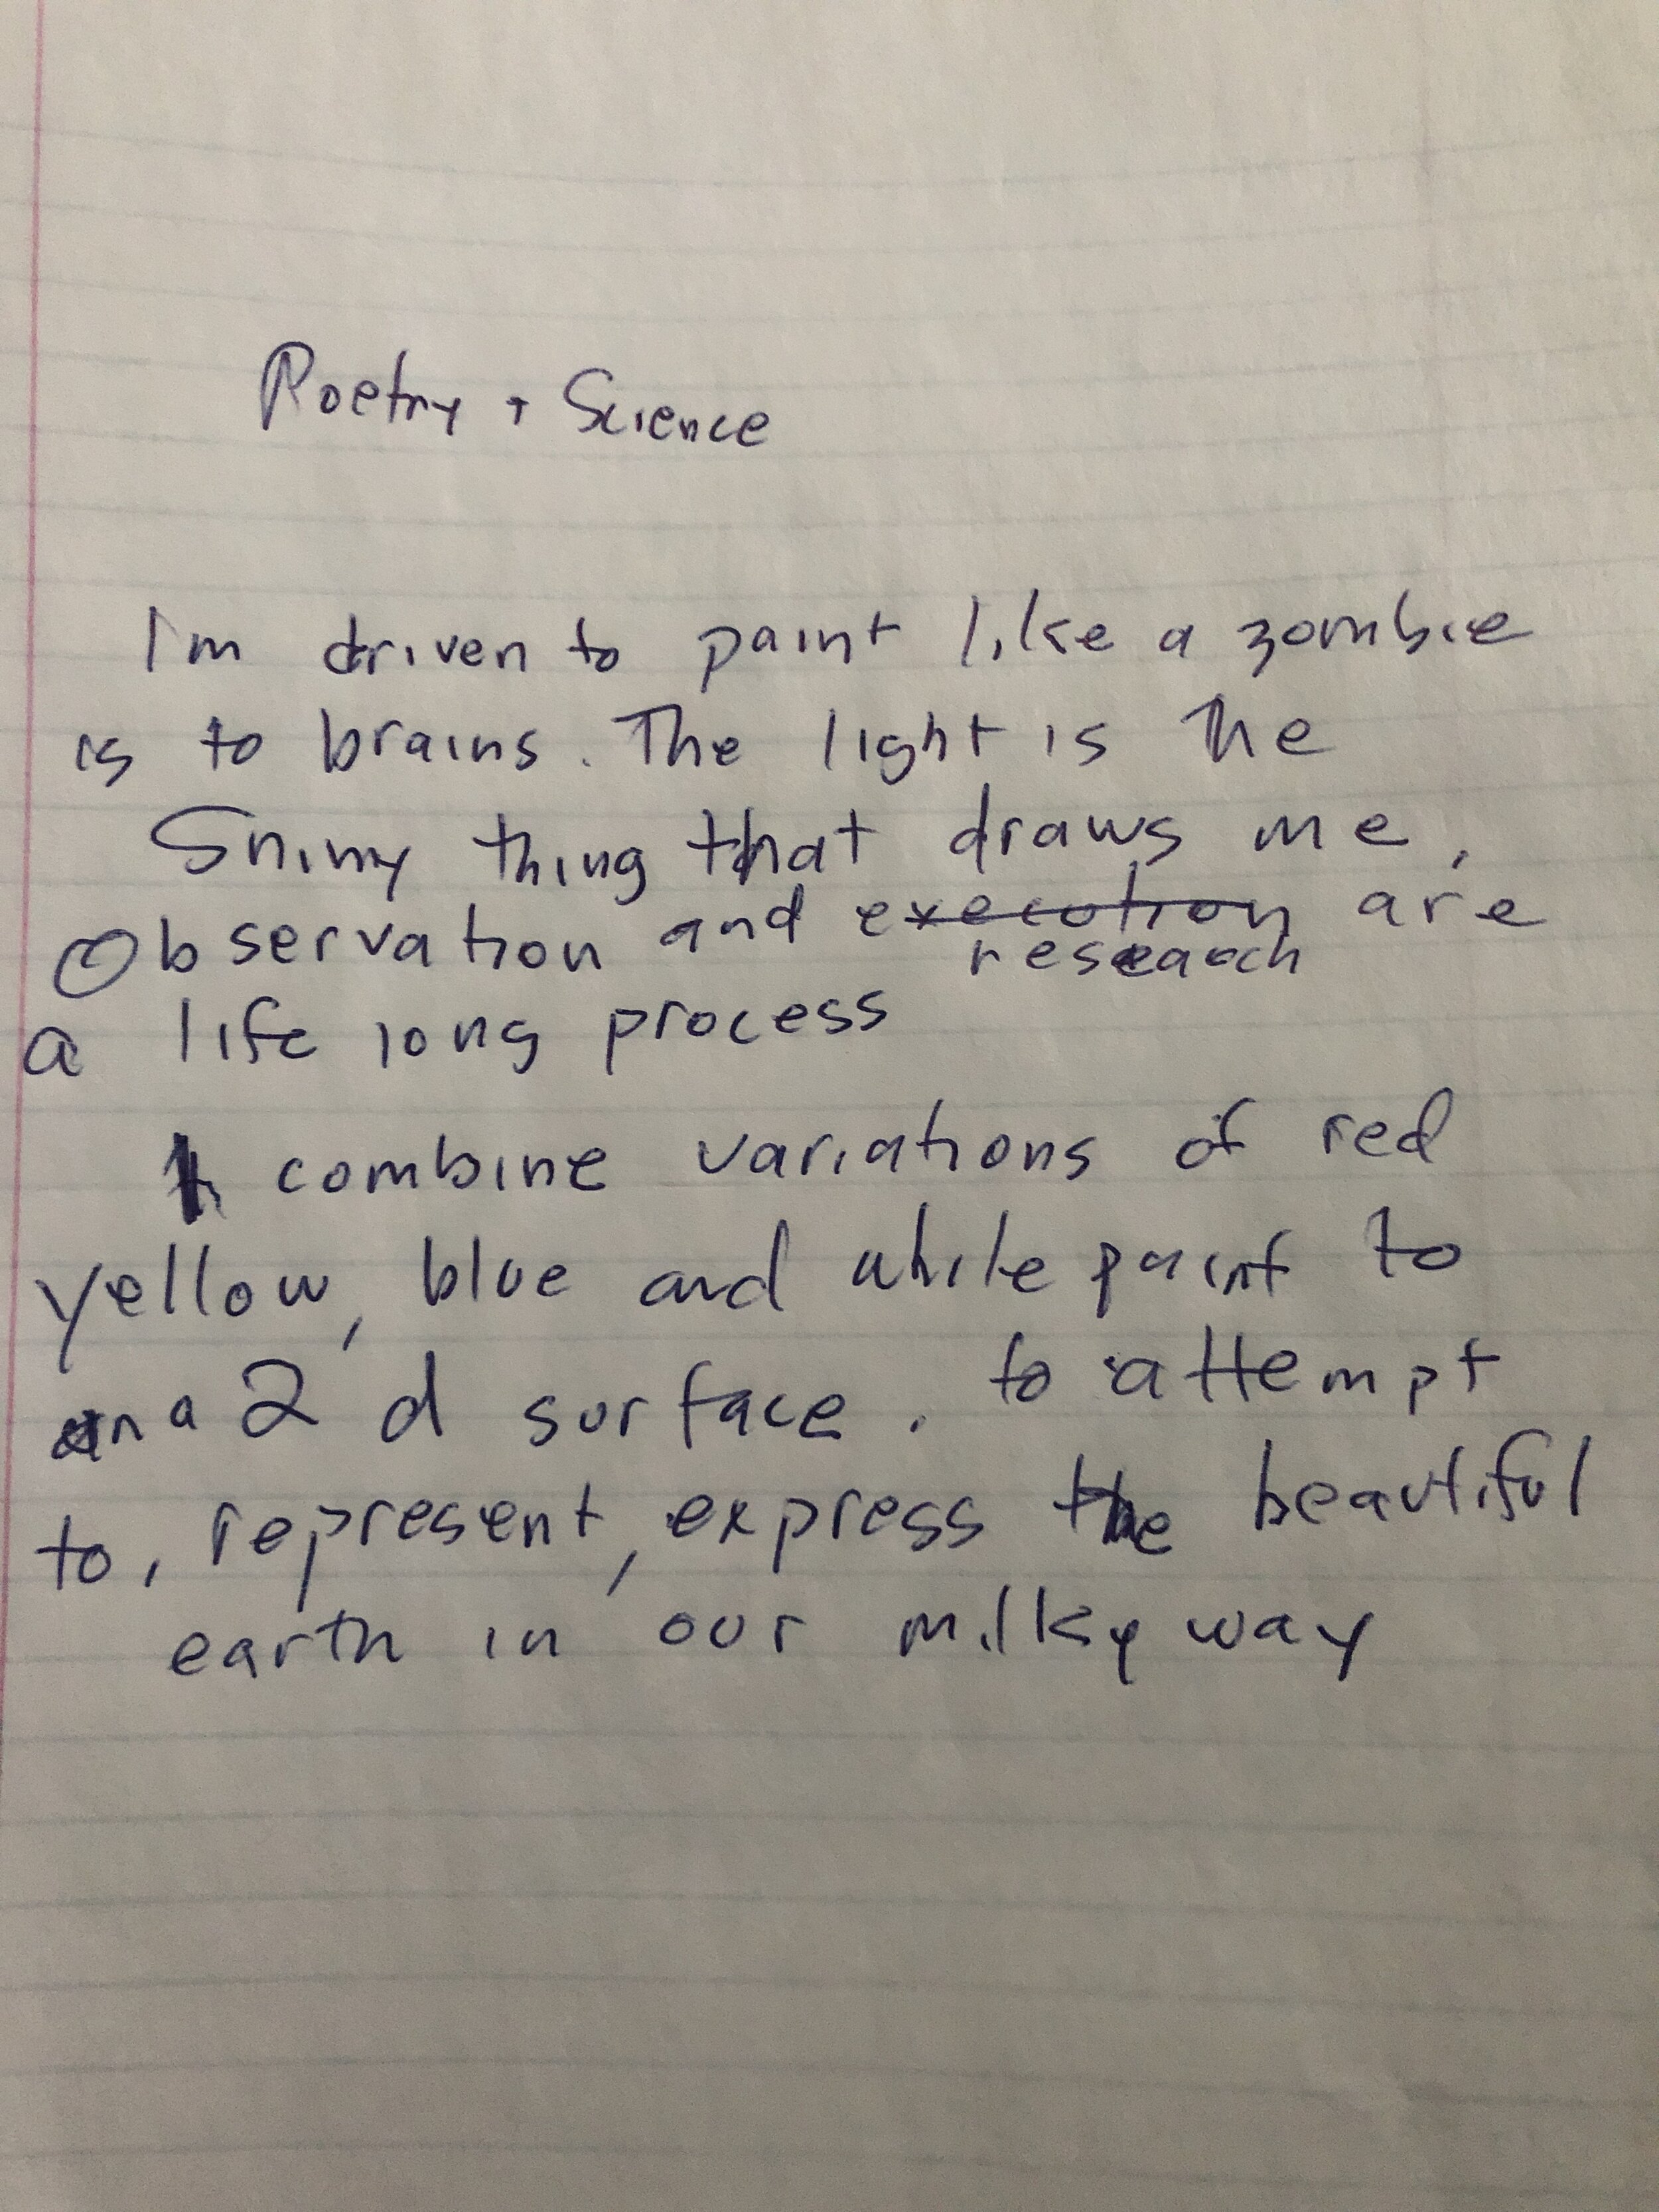 Poetry + Science
I'm driven to paint like a zombie
is to brains. The light is the
Shiny thing that draws me.
Observation and execution are
research
a life long process
I combine variations of red
yellow, blue and white paint to
on a 2 d surface. to attempt
to, represent, express the beautiful
earth in our milky way